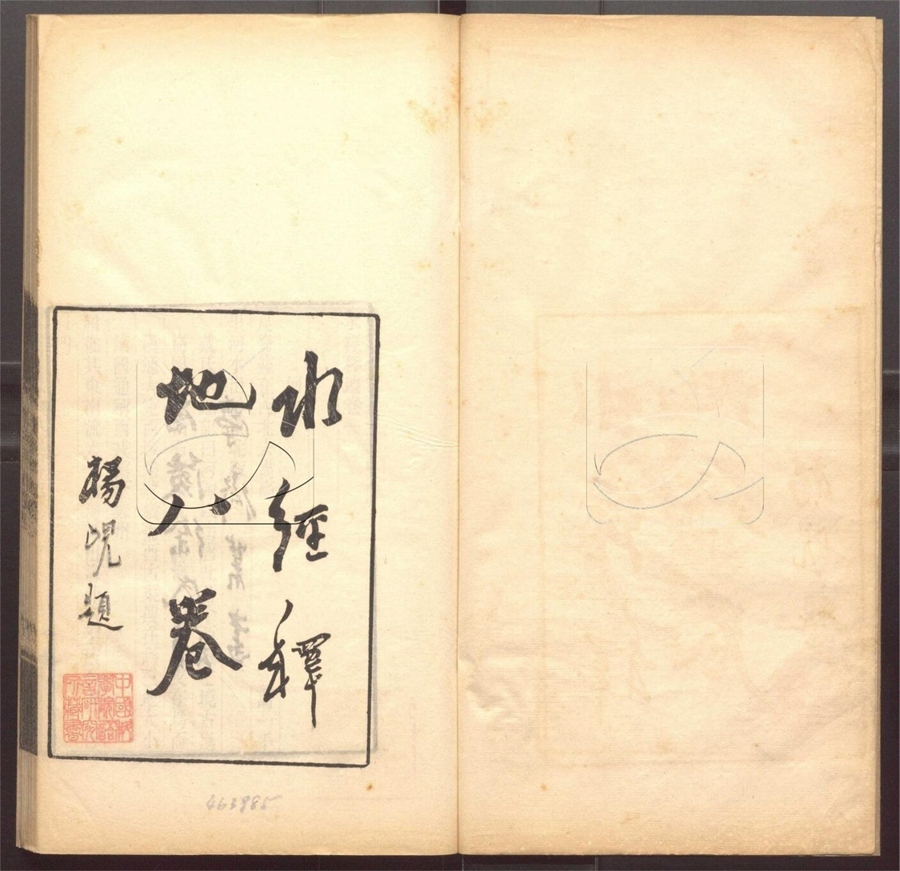 水經釋
地八卷
楊峴題
463985